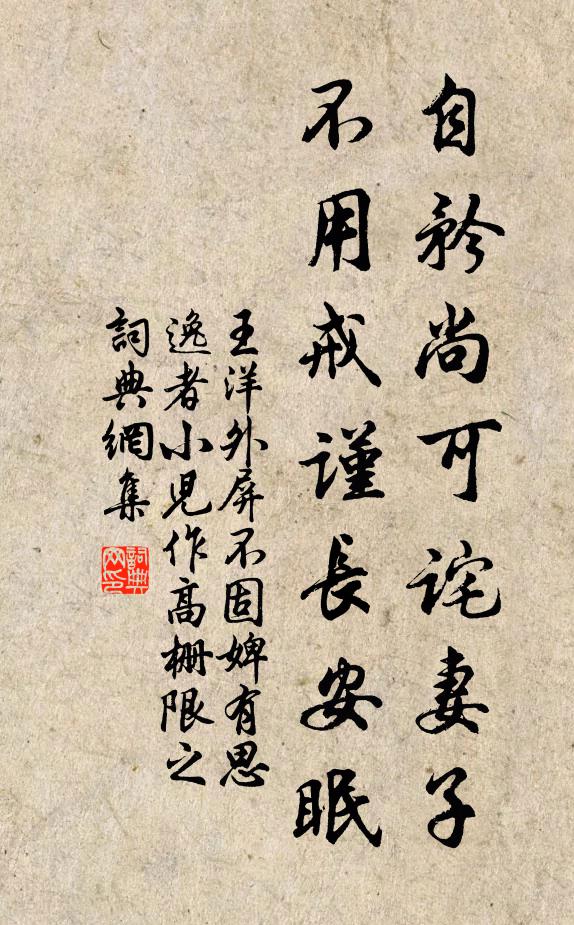 自矜尚可詫妻子
不用戒謹長安眠
王洋外屏不固婢有思
逸者小兒作高柵限之
詞典網集
詞典
网印